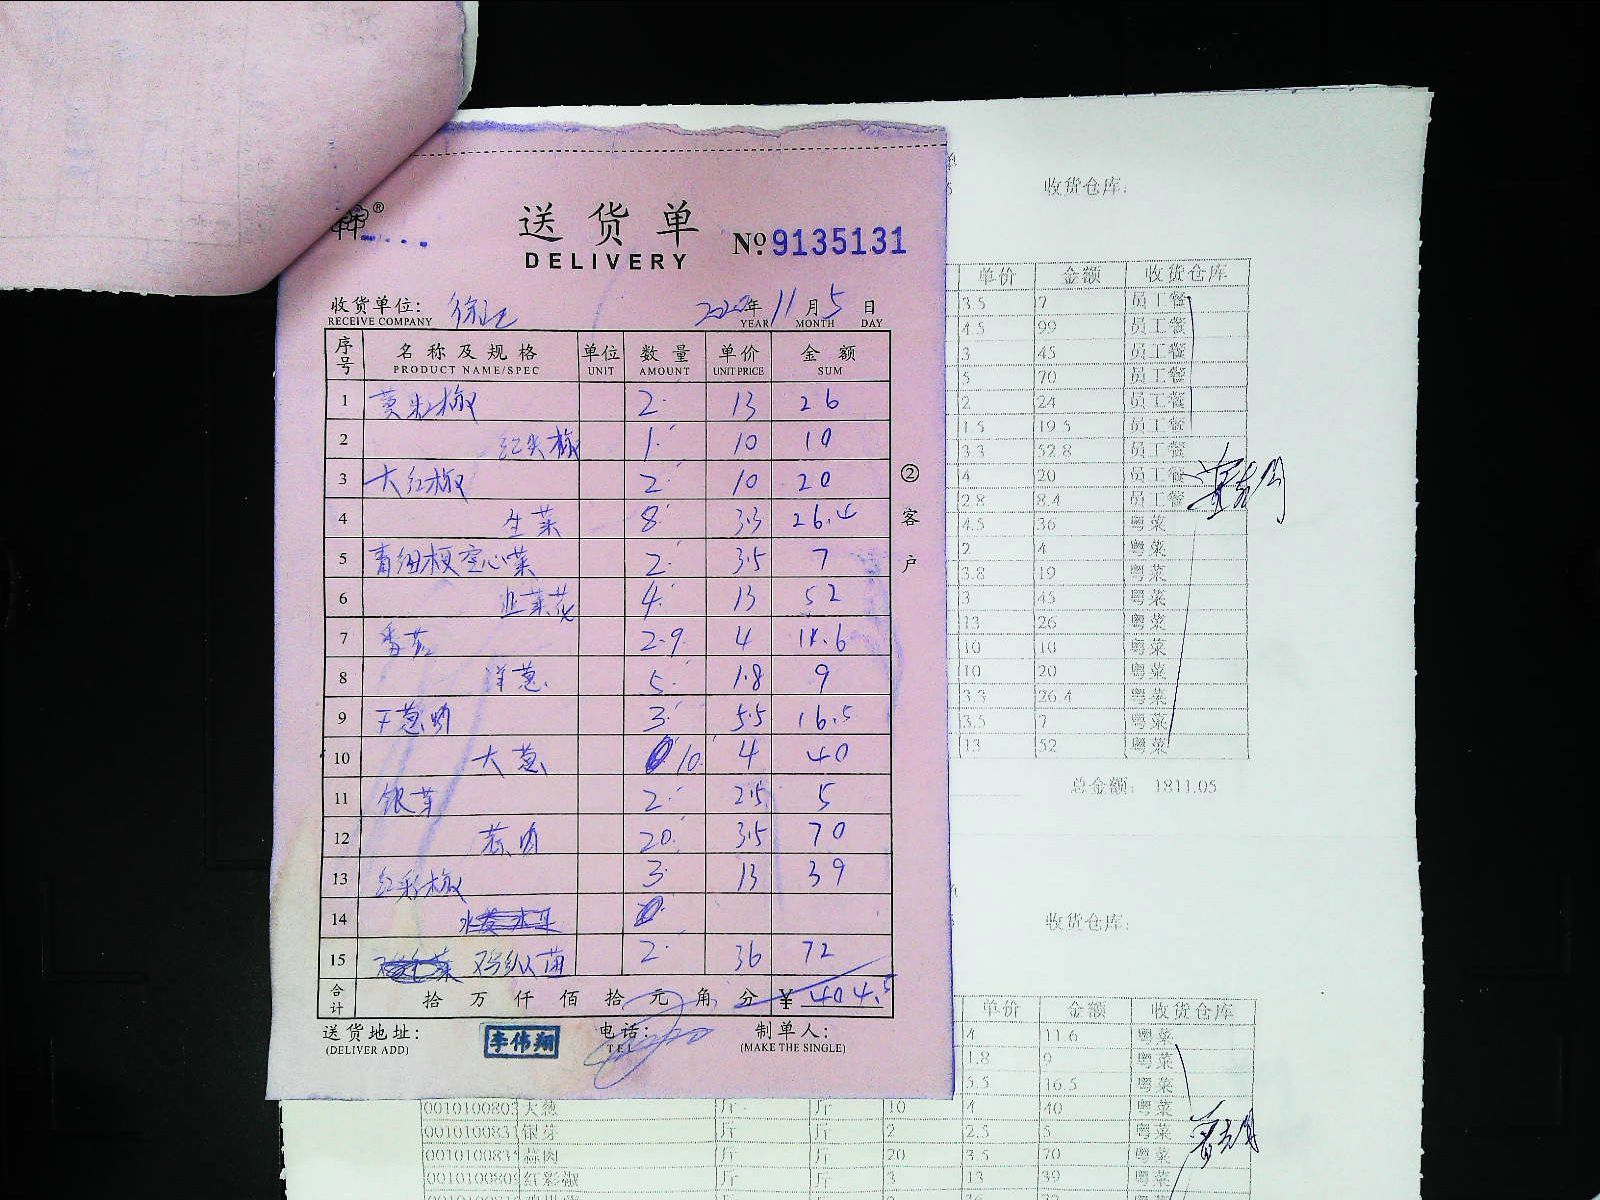 送货单
DELIVERY
No. 9135131
收货单位:
RECEIVE COMPANY
2020年 11月 5日
YEAR MONTH DAY
序号 名称及规格 单位 数量 单价 金额
PRODUCT NAME/SPEC UNIT AMOUNT UNIT PRICE SUM
1 黄彩椒 2 13 26
2 红尖椒 1 10 10
3 大红椒 2 10 20
4 生菜 8 3.3 26.4
5 青细梗空心菜 2 3.5 7
6 韭菜花 4 13 52
7 番茄 2.9 4 11.6
8 洋葱 5 1.8 9
9 干葱头 3 5.5 16.5
10 大葱 10 4 40
11 银芽 2 2.5 5
12 蒜肉 20 3.5 70
13 红彩椒 3 13 39
14
15 鸡枞菌 2 36 72
合计 拾 万 仟 佰 拾 元 角 分 ¥ 404.5
送货地址: 李伟翔 电话: 制单人:
(DELIVER ADD) TEL (MAKE THE SINGLE)
②客户
收货仓库:
单价 金额 收货仓库
3.5 7 员工餐
4.5 99 员工餐
3 45 员工餐
5 70 员工餐
2 24 员工餐
1.5 19.5 员工餐
3.3 52.8 员工餐
4 20 员工餐
2.8 8.4 员工餐
4.5 36 粤菜
2 4 粤菜
3.8 19 粤菜
3 45 粤菜
13 26 粤菜
10 10 粤菜
10 20 粤菜
3.3 26.4 粤菜
3.5 7 粤菜
13 52 粤菜
总金额: 1811.05
收货仓库:
单价 金额 收货仓库
4 11.6 粤菜
1.8 9 粤菜
5.5 16.5 粤菜
大葱 斤 斤 10 4 40 粤菜
银芽 斤 斤 2 2.5 5 粤菜
蒜肉 斤 斤 20 3.5 70 粤菜
红彩椒 斤 斤 3 13 39 粤菜